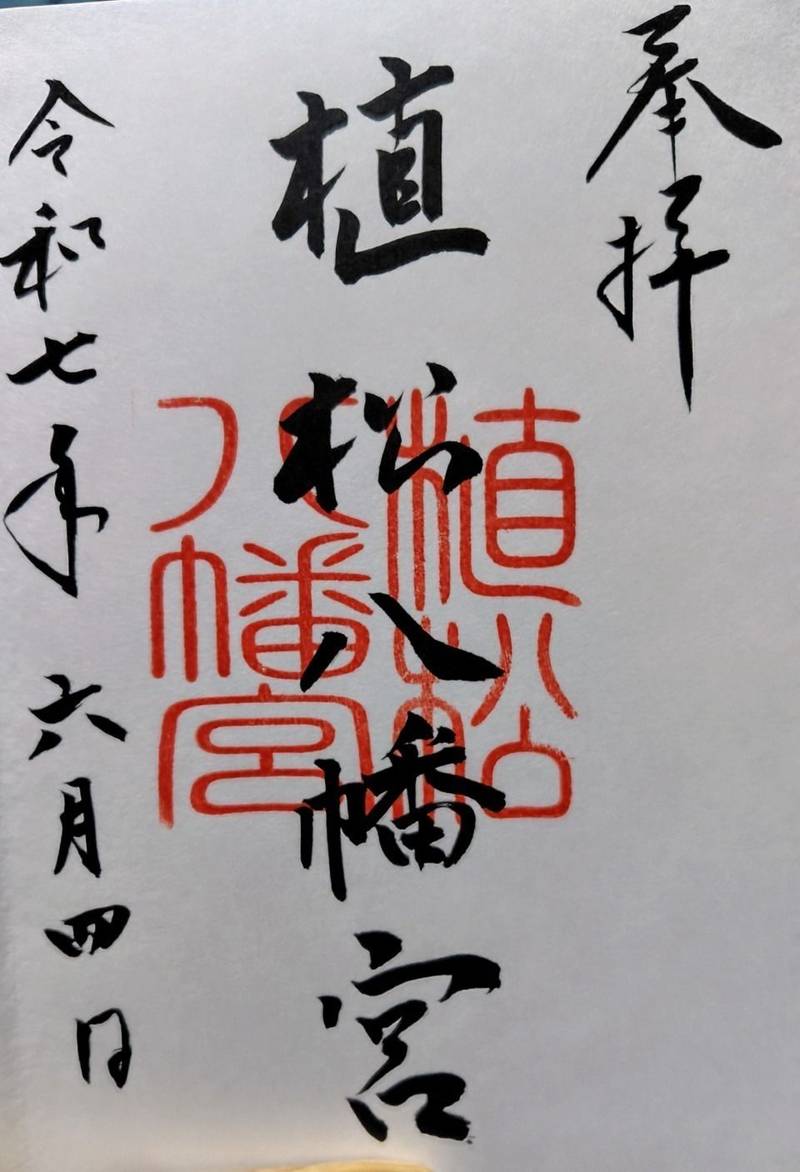 奉拝
植松八幡宮
植松
八幡宮
令和七年六月四日